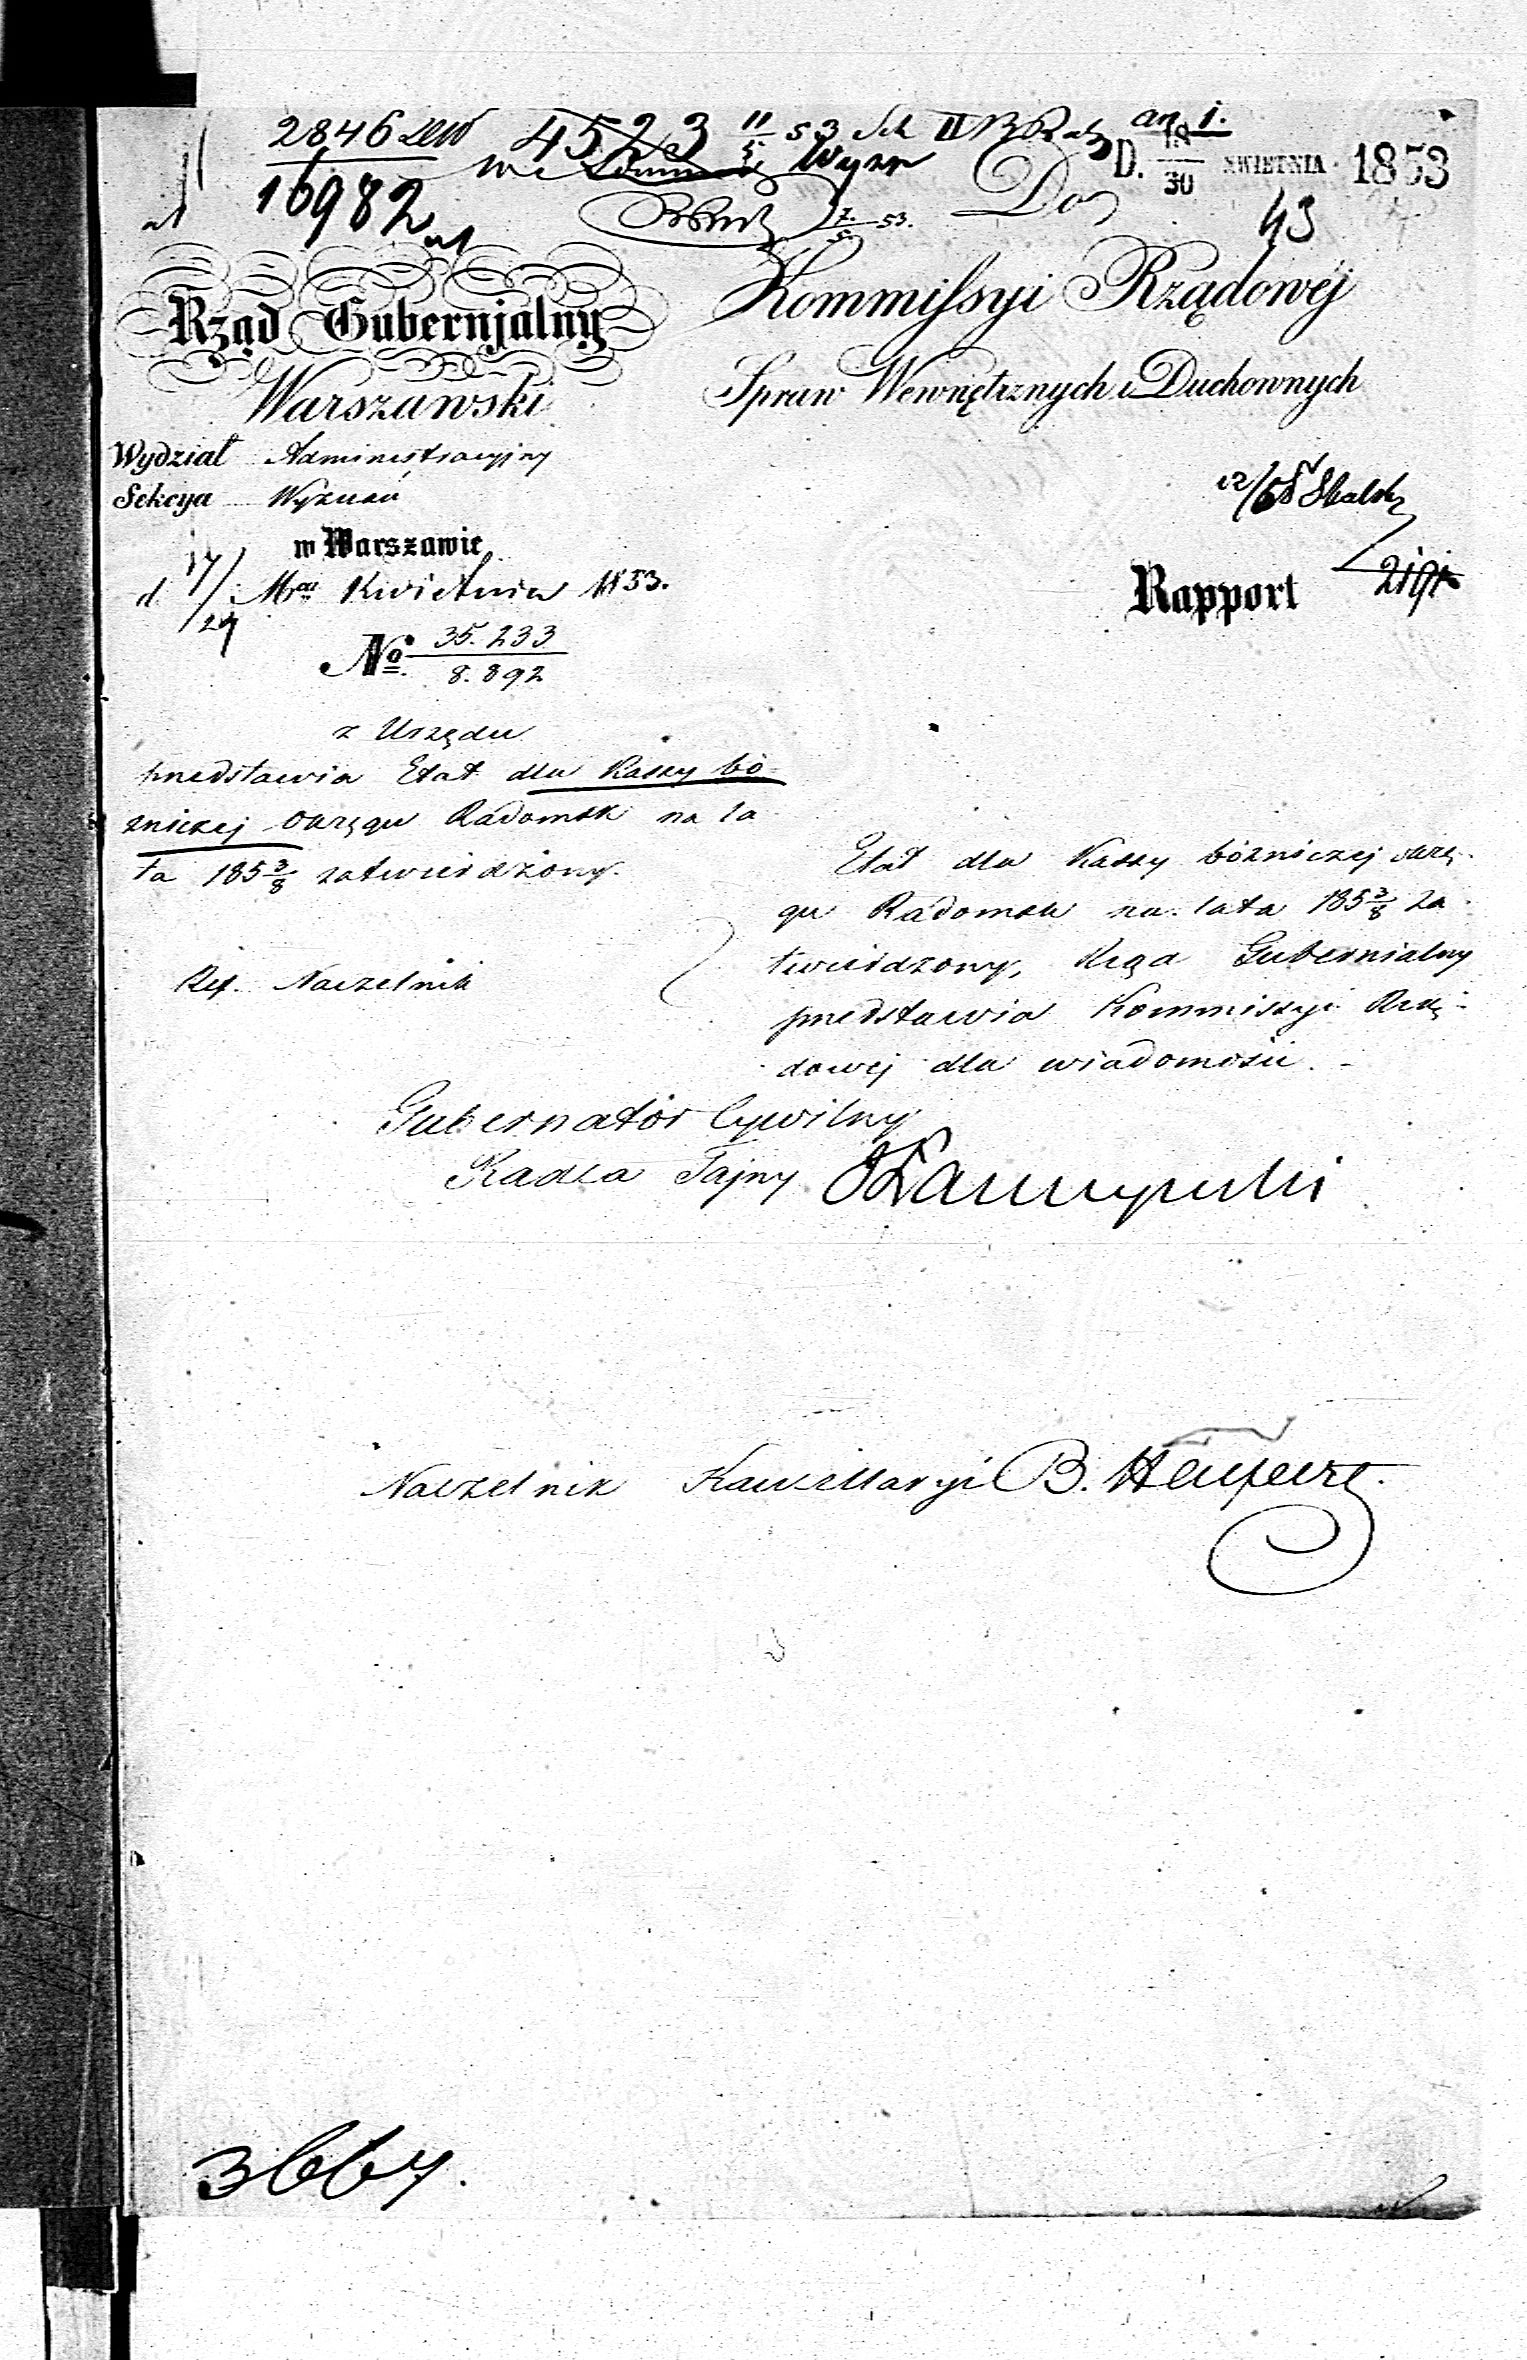 2846
16982
4523 11/5 53
Wyzn
7/5 53.
D. 18/30 KWIETNIA 1853
43
Do
Rząd Gubernjalny
Warszawski
Kommissyi Rządowéj
Spraw Wewnętrznych i Duchownych
Wydział Administracyjny
Sekcya Wyznań
w Warszawie
d 17/29 Mca Kwietnia 1853.
No. 35.233/8.892
Rapport
z Urzędu
przedstawia Etat dla Kassy bó-
zniczej okręgu Radomsk na la
ta 185 3/8 zatwierdzony.
Ref. Naczelnik
Etat dla Kassy bózniczej okrę-
gu Radomsk na lata 185 3/8 za
twierdzony, Rząd Gubernialny
przedstawia Kommissyi Rzą-
dowej dla wiadomości. -
Gubernator Cywilny
Radca Tajny
Naczelnik Kancellaryi B.
3667.